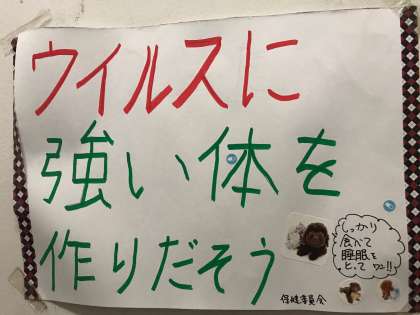 ウイルスに
強い体を
作りだそう
しっかり
食べて
睡眠を
とって
保健委員会